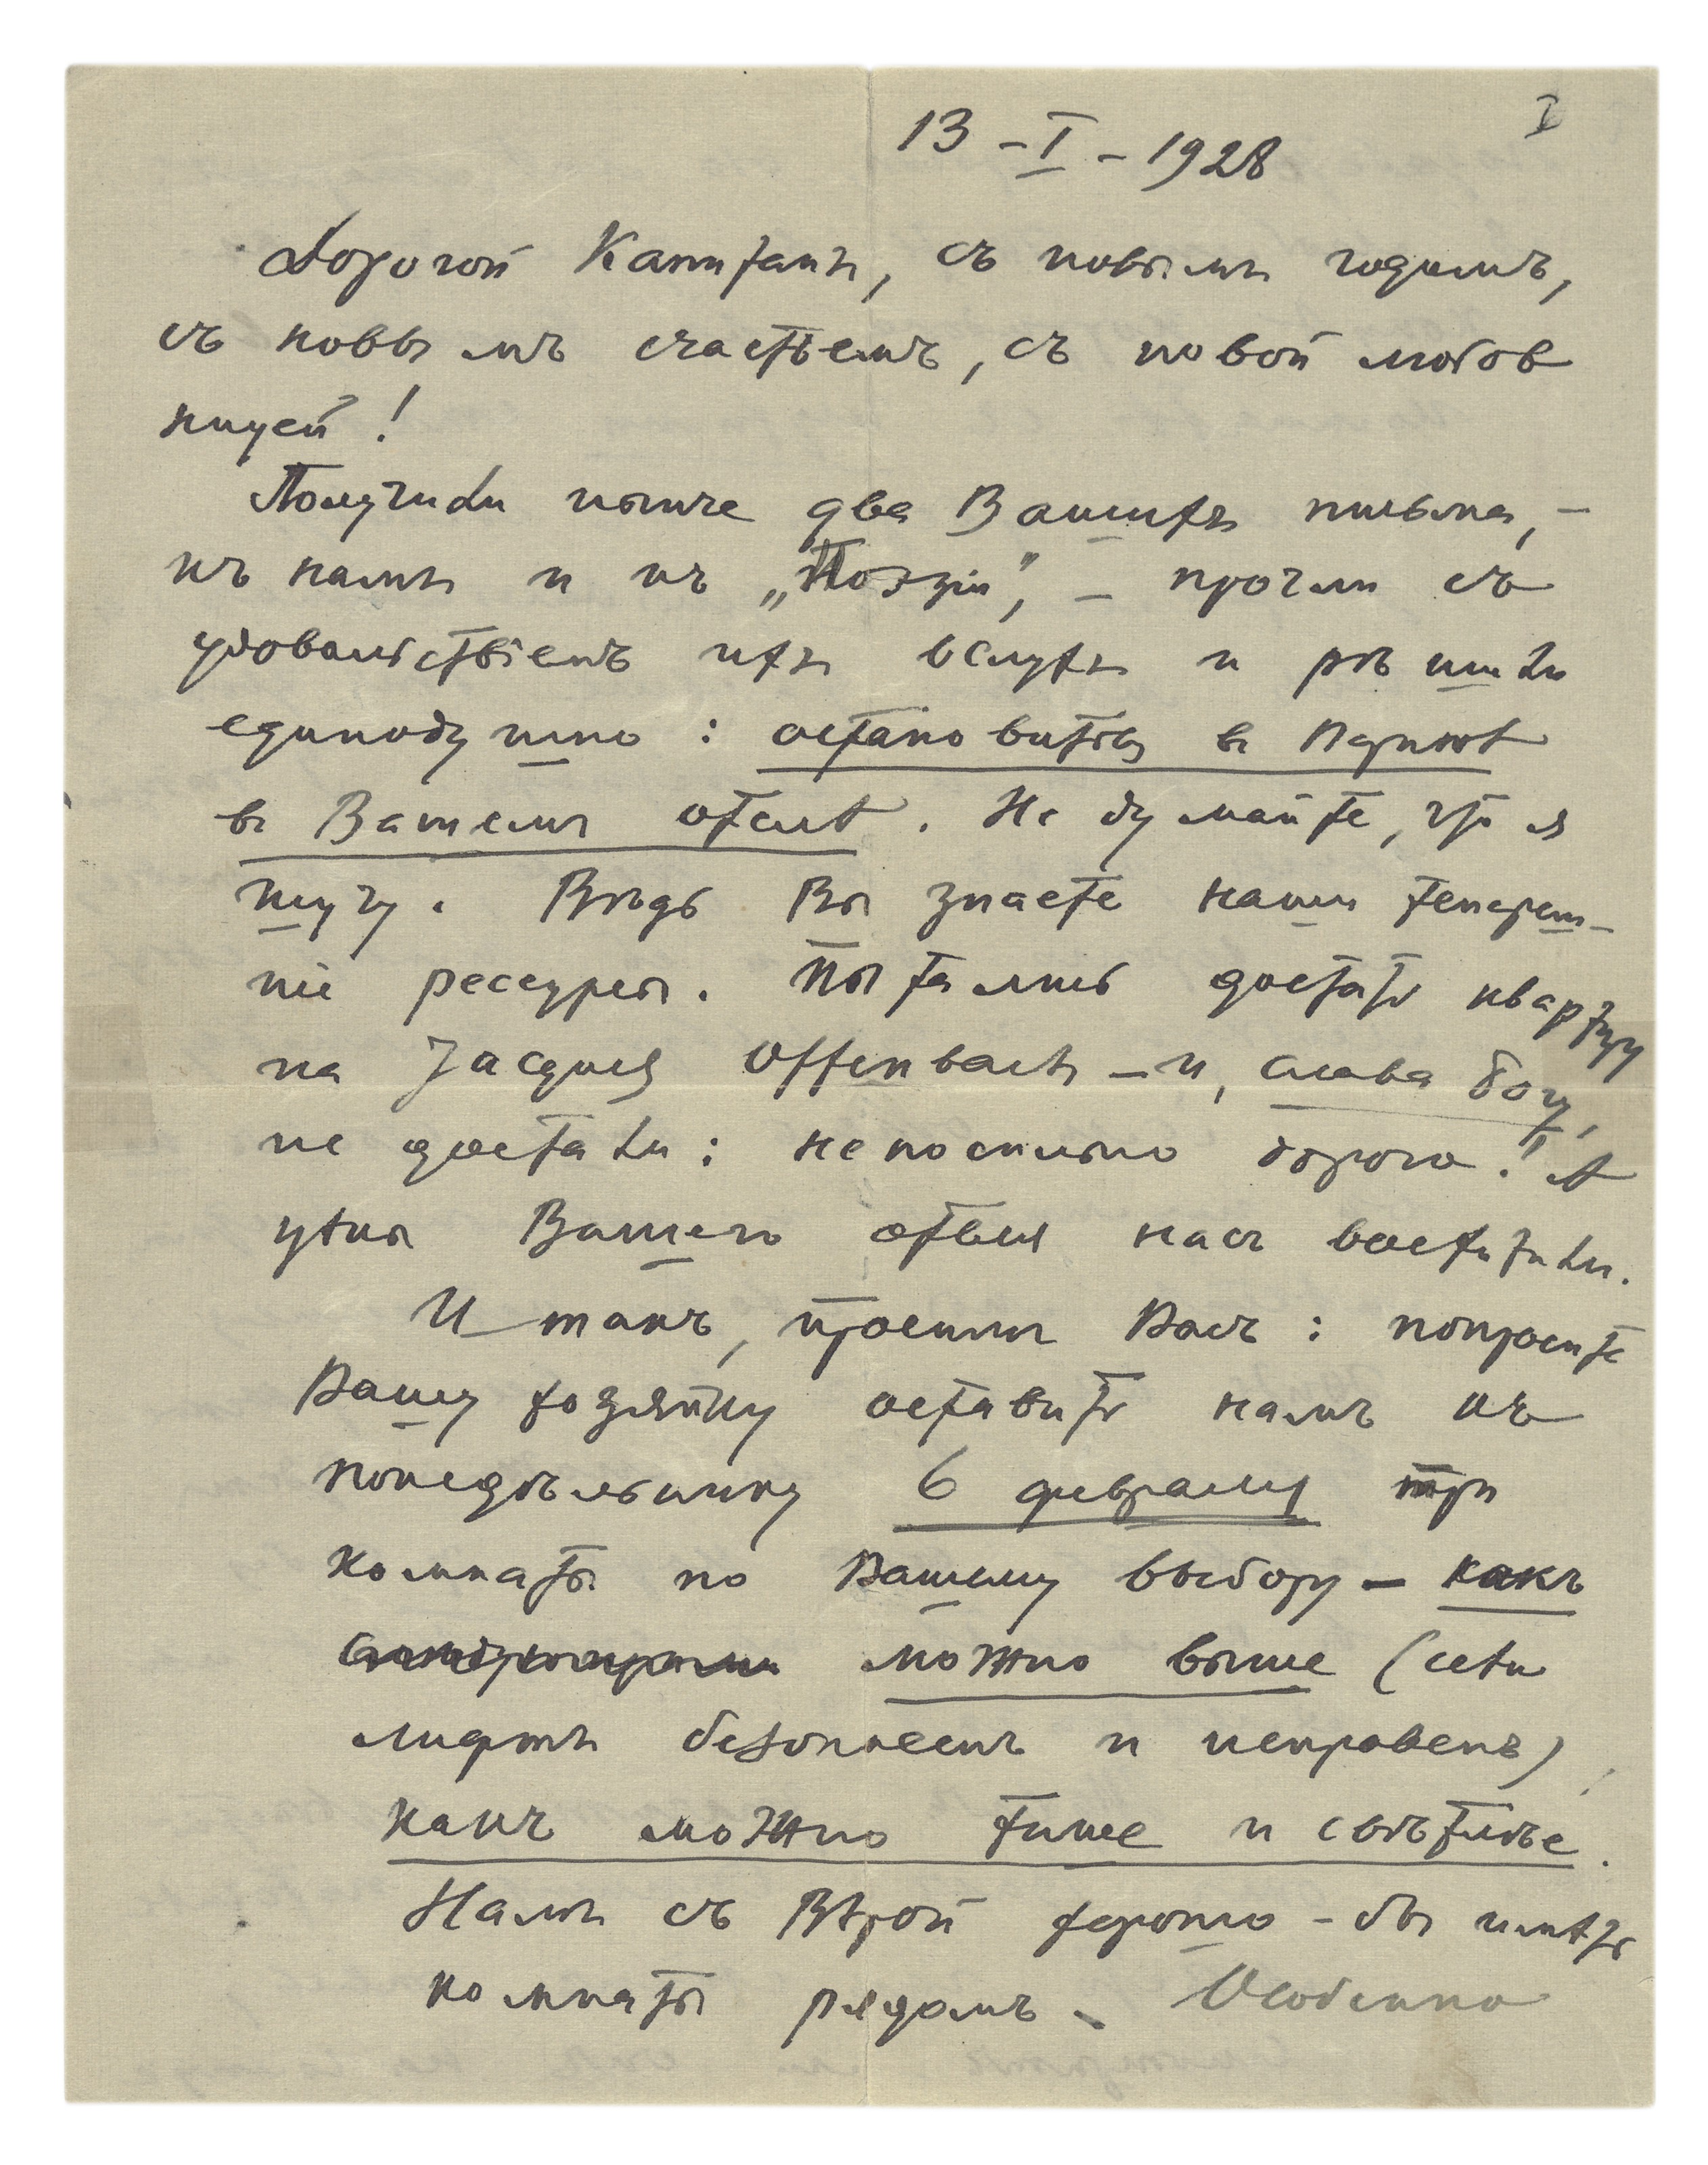 I
13 – I – 1928
Дорогой Капитанъ, съ новымъ годомъ,
съ новымъ счастьемъ, съ новой любов
ницей!
Получили нынче два Вашихъ письма, –
къ намъ и къ „Поэзiи”, – прочли съ
удовольствiемъ ихъ вслухъ и рѣшили
единодушно: остановиться въ Парижѣ
въ Вашемъ отелѣ. Не думайте, что я
шучу. Вѣдь Вы знаете наши тепереш-
нiе ресурсы. Пытались достать квартиру
на Jacques Offenbach – и, слава Богу,
не достали: непосильно дорого! А
цѣны Вашего отеля насъ восхитили.
И такъ, просимъ Васъ: попросите
Вашу хозяйку оставить намъ къ
понедѣльнику 6 февраля три
комнаты по Вашему выбору – какъ
можно выше (если
лифтъ безопасенъ и исправенъ)
какъ можно тише и свѣтлѣе.
Намъ съ Вѣрой хорошо-бы имѣть
комнаты рядомъ. Особенно